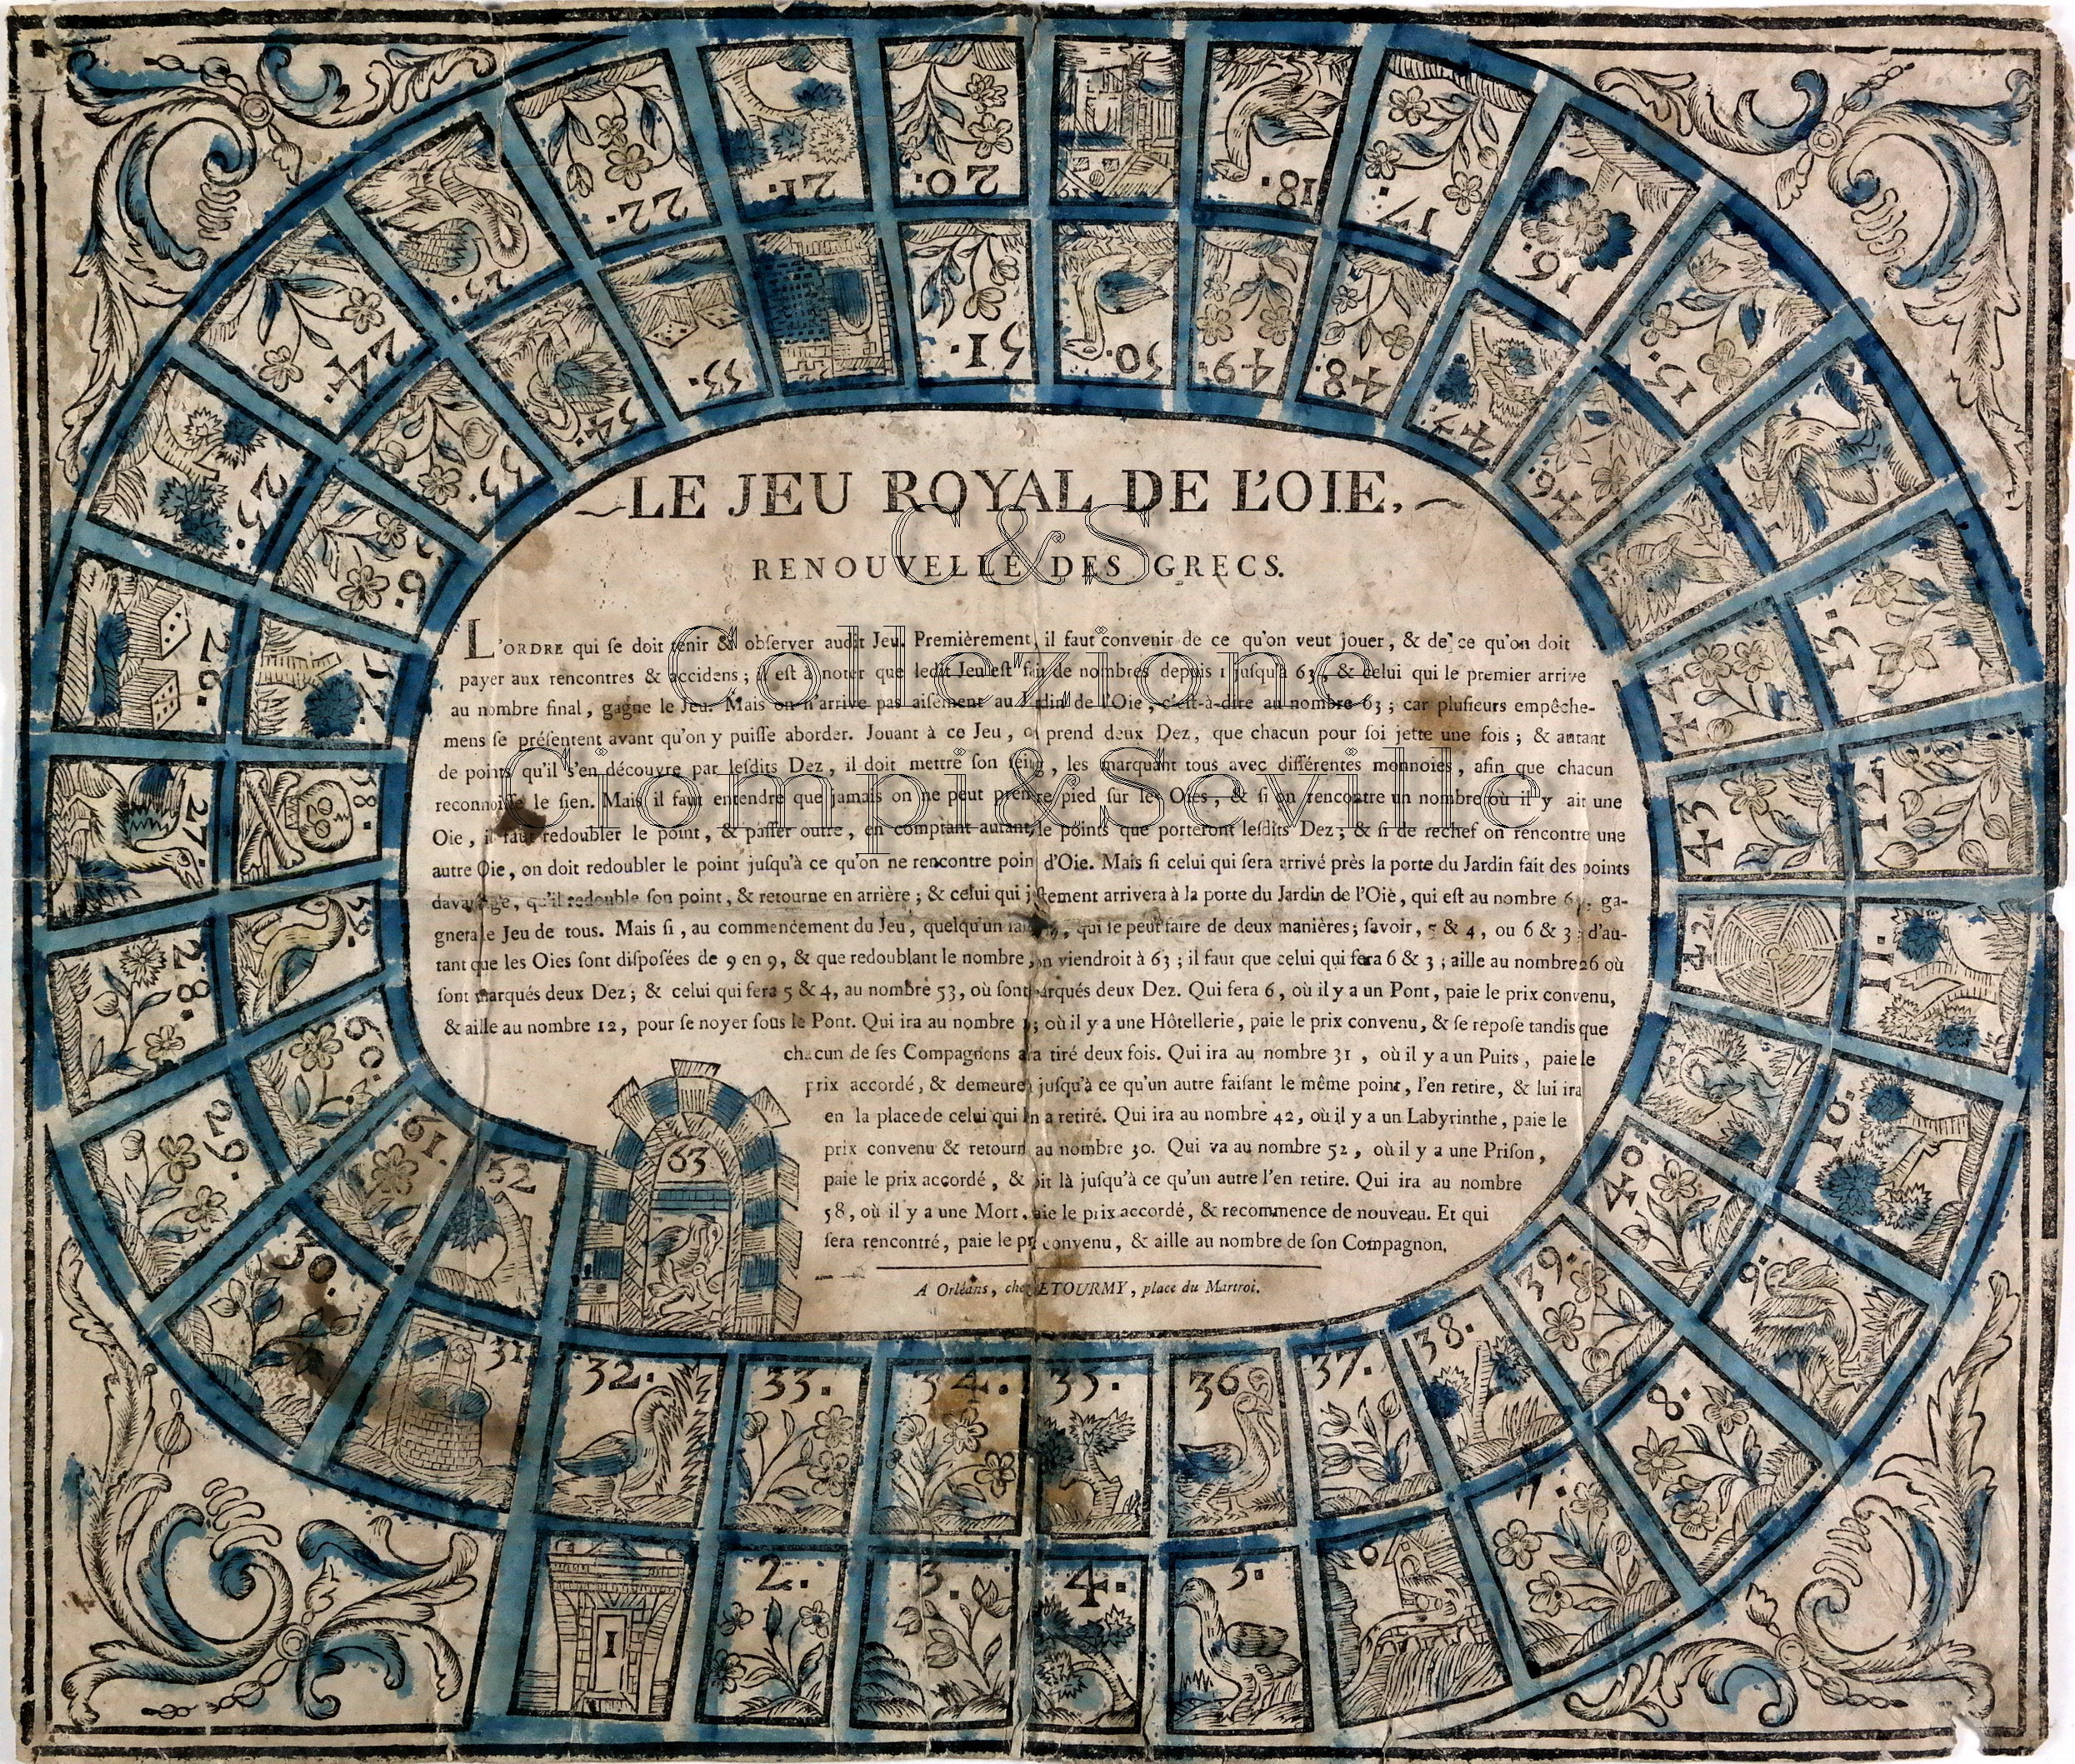 LE JEU ROYAL DE L'OIE,
RENOUVELLÉ DES GRECS.
L'ORDRE qui ſe doit tenir & obſerver audit Jeu. Premièrement, il faut convenir de ce qu'on veut jouer, & de ce qu'on doit
payer aux rencontres & accidens; il eſt à noter que ledit Jeu eſt fait de nombres depuis 1 juſqu'à 63, & celui qui le premier arrive
au nombre final, gagne le Jeu. Mais on n'arrive pas aiſément au Jardin de l'Oie, c'eſt-à-dire au nombre 63; car pluſieurs empêche-
mens ſe préſentent avant qu'on y puiſſe aborder. Jouant à ce Jeu, on prend deux Dez, que chacun pour ſoi jette une fois; & autant
de points qu'il s'en découvre par leſdits Dez, il doit mettre ſon ſeing, les marquant tous avec différentes monnoies, afin que chacun
reconnoiſſe le ſien. Mais il faut entendre que jamais on ne peut prendre pied ſur les Oies, & ſi on rencontre un nombre où il y ait une
Oie, il faut redoubler le point, & paſſer outre, en comptant autant de points que porteront leſdits Dez; & ſi de rechef on rencontre une
autre Oie, on doit redoubler le point juſqu'à ce qu'on ne rencontre point d'Oie. Mais ſi celui qui ſera arrivé près la porte du Jardin fait des points
davantage, qu'il redouble ſon point, & retourne en arrière; & celui qui juſtement arrivera à la porte du Jardin de l'Oie, qui eſt au nombre 63, ga-
gnera le Jeu de tous. Mais ſi, au commencement du Jeu, quelqu'un qui ſe peut faire de deux manières; ſavoir, 5 & 4, ou 6 & 3; d'au-
tant que les Oies ſont diſpoſées de 9 en 9, & que redoublant le nombre, on viendroit à 63; il faut que celui qui fera 6 & 3; aille au nombre 26 où
ſont marqués deux Dez; & celui qui fera 5 & 4, au nombre 53, où ſont marqués deux Dez. Qui fera 6, où il y a un Pont, paie le prix convenu,
& aille au nombre 12, pour ſe noyer ſous le Pont. Qui ira au nombre où il y a une Hôtellerie, paie le prix convenu, & ſe repoſe tandis que
chacun de ſes Compagnons ara tiré deux fois. Qui ira au nombre 31, où il y a un Puits, paie le
prix accordé, & demeure juſqu'à ce qu'un autre faiſant le même point, l'en retire, & lui ira
en la place de celui qui l'en a retiré. Qui ira au nombre 42, où il y a un Labyrinthe, paie le
prix convenu & retourn au nombre 30. Qui va au nombre 52, où il y a une Priſon,
paie le prix accordé, & ſoit là juſqu'à ce qu'un autre l'en retire. Qui ira au nombre
58, où il y a une Mort, paie le prix accordé, & recommence de nouveau. Et qui
ſera rencontré, paie le prix convenu, & aille au nombre de ſon Compagnon.
A Orléans, chez LETOURMY, place du Martroi.
C & S
Collezione
Ciompi&Seville
1
2.
3.
4.
5.
6
7.
8.
9.
10.
11.
12.
13.
15.
16.
17.
18.
19
20.
21.
22.
23.
24.
25.
26.
27.
28.
29.
30.
31
32.
33.
34.
35.
36
37.
38.
39.
40.
42.
43
44.
46.
47.
48.
49.
50.
51.
53.
54.
55.
56.
57.
58.
59.
60.
61.
52
63.